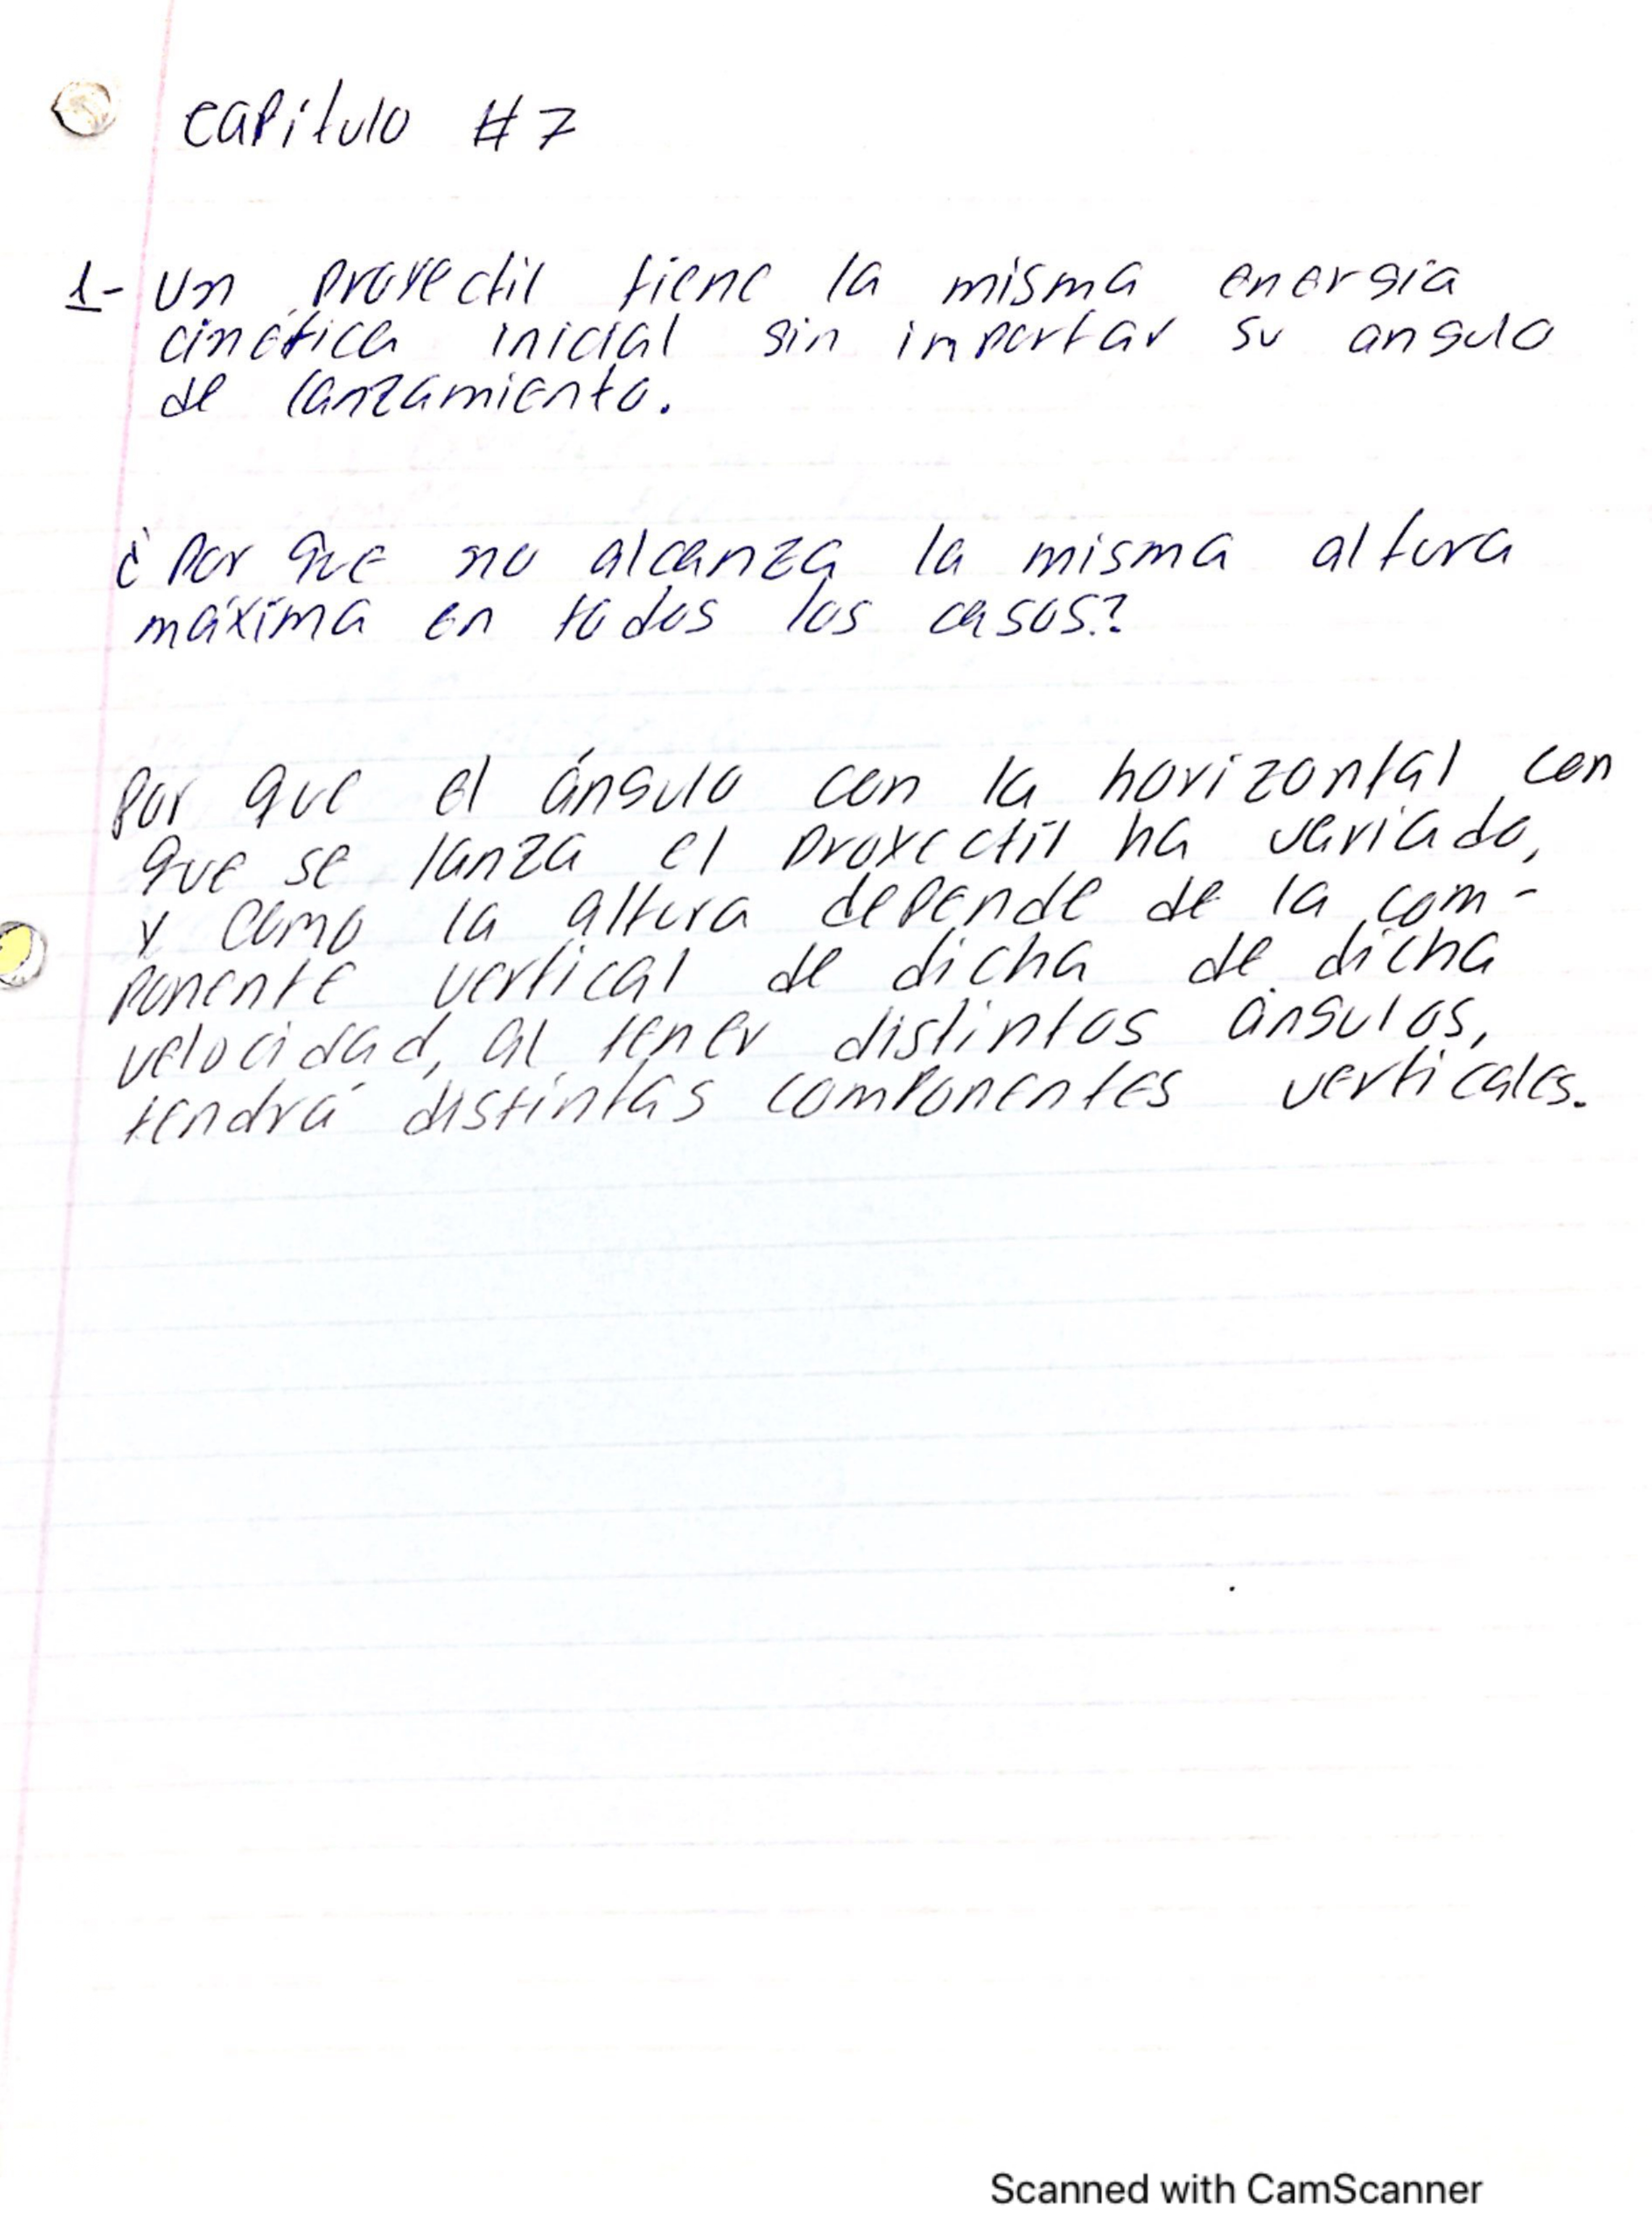 Capítulo #7
1- Un proyectil tiene la misma energía
cinética inicial sin importar su angulo
de lanzamiento.
¿Por que no alcanza la misma altura
máxima en todos los casos?
Por que el ángulo con la horizontal con
que se lanza el proyectil ha variado,
y como la altura depende de la com-
ponente vertical de dicha de dicha
velocidad, al tener distintos ángulos,
tendrá distintas componentes verticales.
Scanned with CamScanner